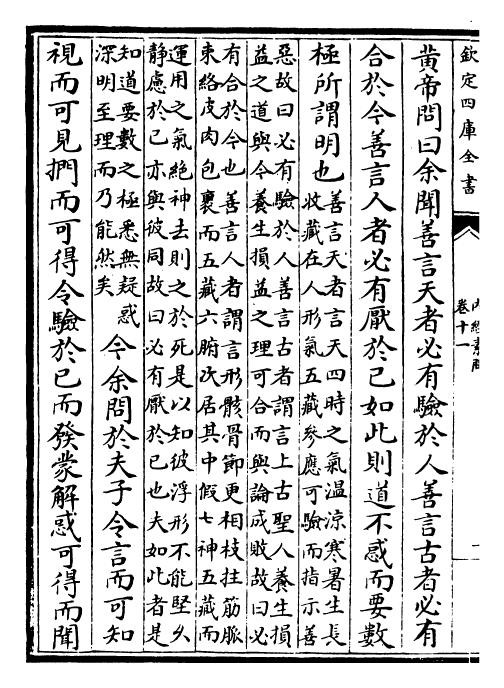 欽定四庫全書
內經素問
卷十一
一
黄帝問曰余聞善言天者必有驗於人善言古者必有
合於今善言人者必有厭於己如此則道不惑而要數
極所謂明也
善言天者言天四時之氣溫涼寒暑生長
收藏在人形氣五藏參應可驗而指示善
惡故曰必有驗於人善言古者謂言上古聖人養生損
益之道與今養生損益之理可合而與論成敗故曰必
有合於今也善言人者謂言形骸骨節更相枝拄筋脈
束絡皮肉包裹而五藏六腑次居其中假七神五藏而
運用之氣絶神去則之於死是以知彼浮形不能堅久
静慮於己亦與彼同故曰必有厭於己也夫如此者是
知道要數之極悉無疑惑
深明至理而乃能然矣
今余問於夫子令言而可知
視而可見捫而可得令驗於己而發蒙解惑可得而聞